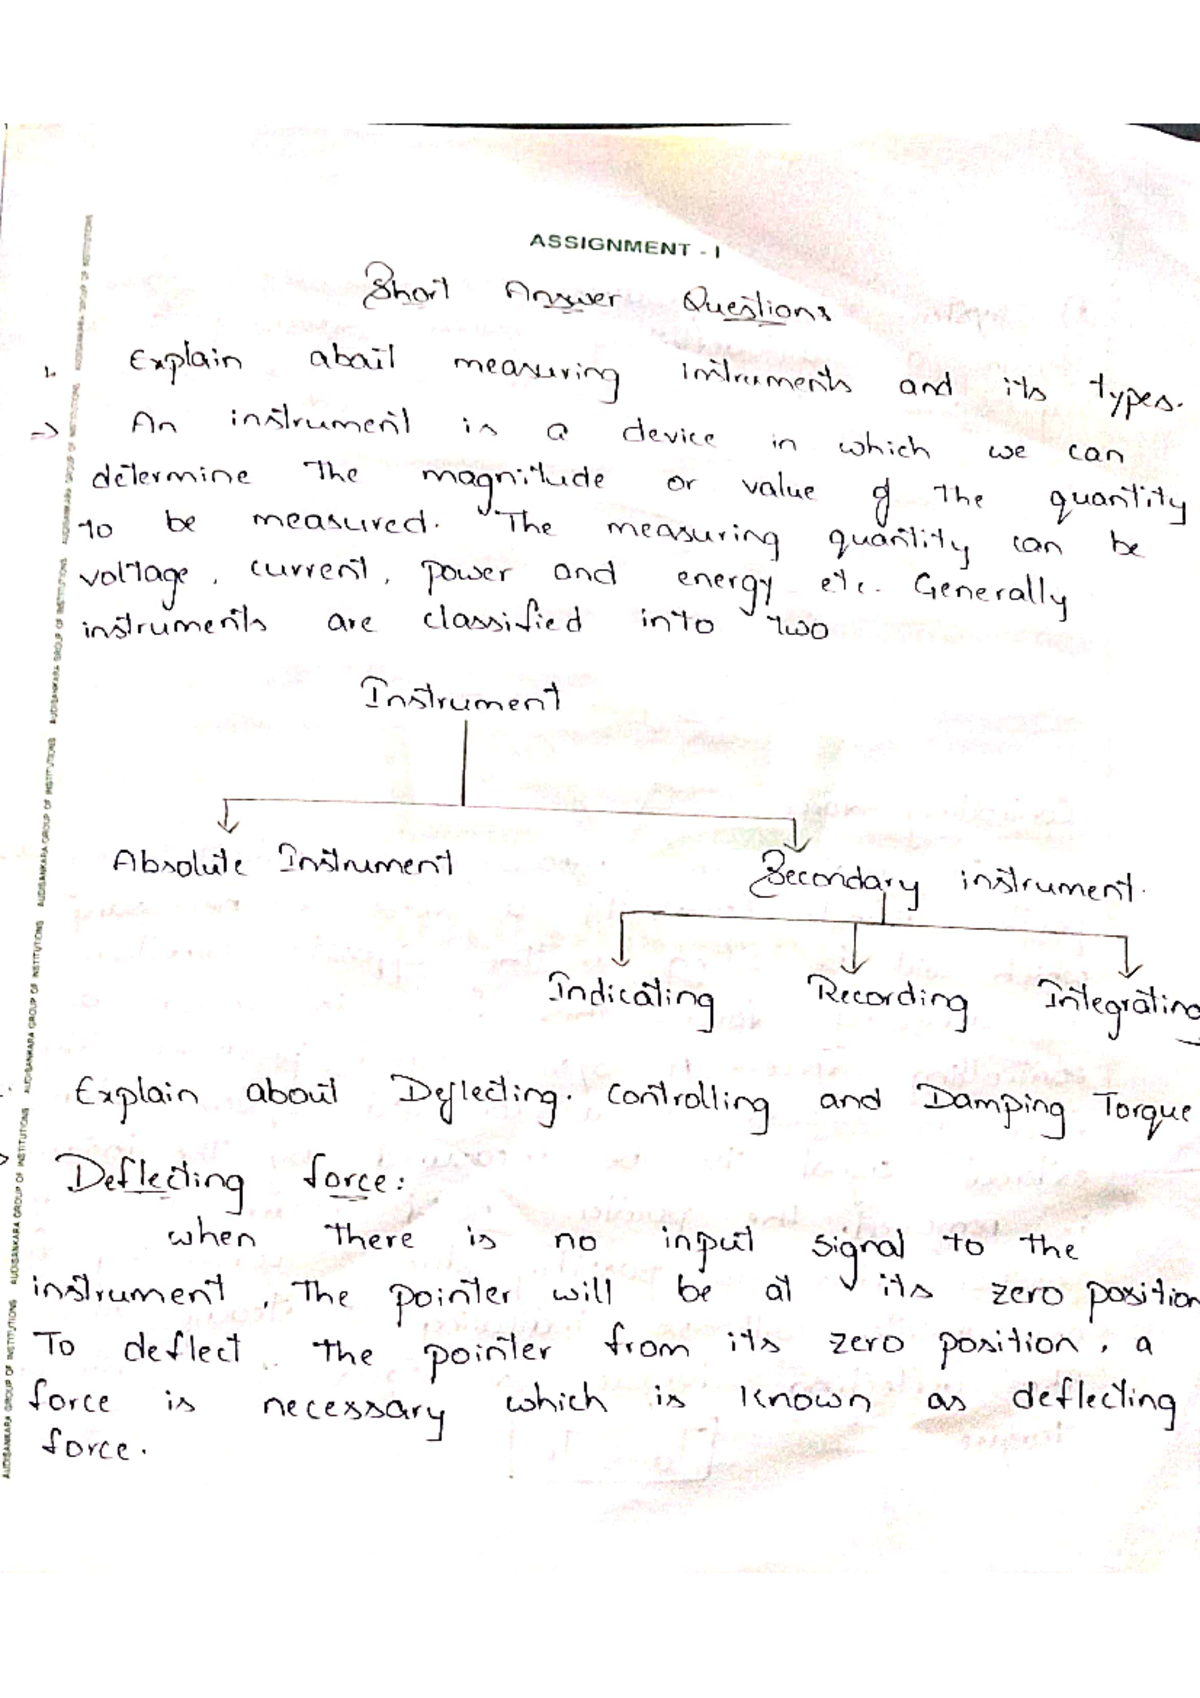 ASSIGNMENT - I
Short Answer Questions
1. Explain about measuring instruments and its types.
=> An instrument is a device in which we can
determine the magnitude or value of the quantity
to be measured. The measuring quantity can be
voltage, current, power and energy etc. Generally
instruments are classified into two
Instrument
Absolute Instrument
Secondary instrument.
Indicating Recording Integrating
Explain about Deflecting. Controlling and Damping Torque
Deflecting force:
when there is no input signal to the
instrument, the pointer will be at its zero position
To deflect the pointer from its zero position, a
force is necessary which is known as deflecting
force.
AUDISANKARA GROUP OF INSTITUTIONS AUDISANKARA GROUP OF INSTITUTIONS AUDISANKARA GROUP OF INSTITUTIONS AUDISANKARA GROUP OF INSTITUTIONS AUDISANKARA GROUP OF INSTITUTIONS AUDISANKARA GROUP OF INSTITUTIONS AUDISANKARA GROUP OF INSTITUTIONS